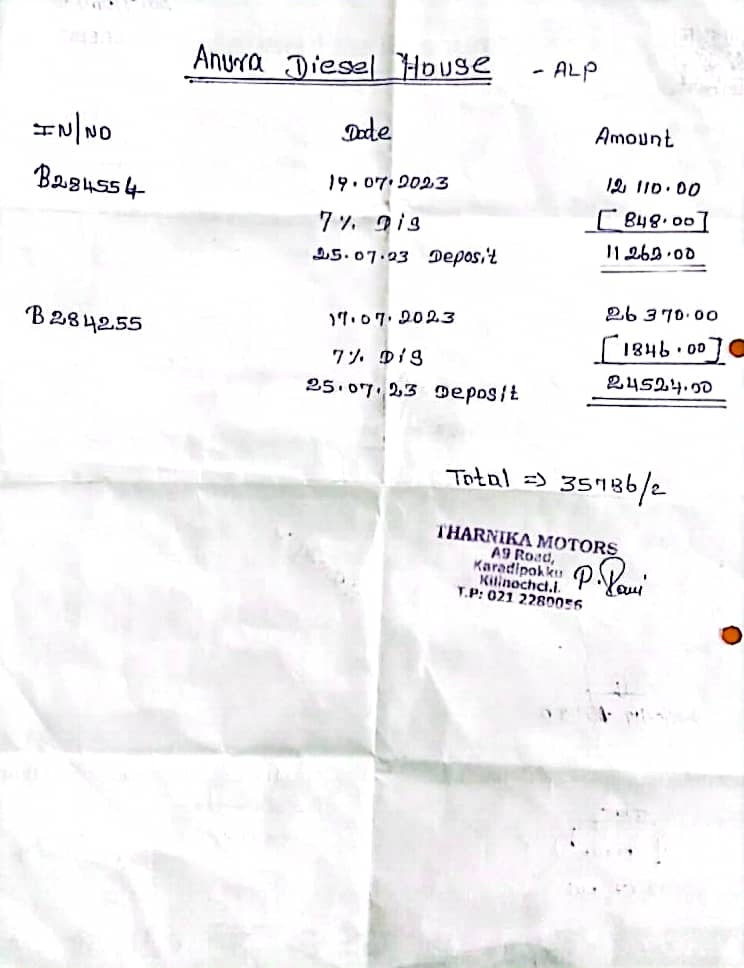 Anura Diesel House - ALP
IN/NO Date Amount
B284554 19.07.2023 12 110.00
7% Dis [848.00]
25.07.23 Deposit 11 262.00
B284255 17.07.2023 26 370.00
7% Dis [1846.00]
25.07.23 Deposit 24524.00
Total => 35786/2
THARNIKA MOTORS
A9 Road,
Karadipokku
Kilinochci.
T.P: 021 2280056
P. Ravi